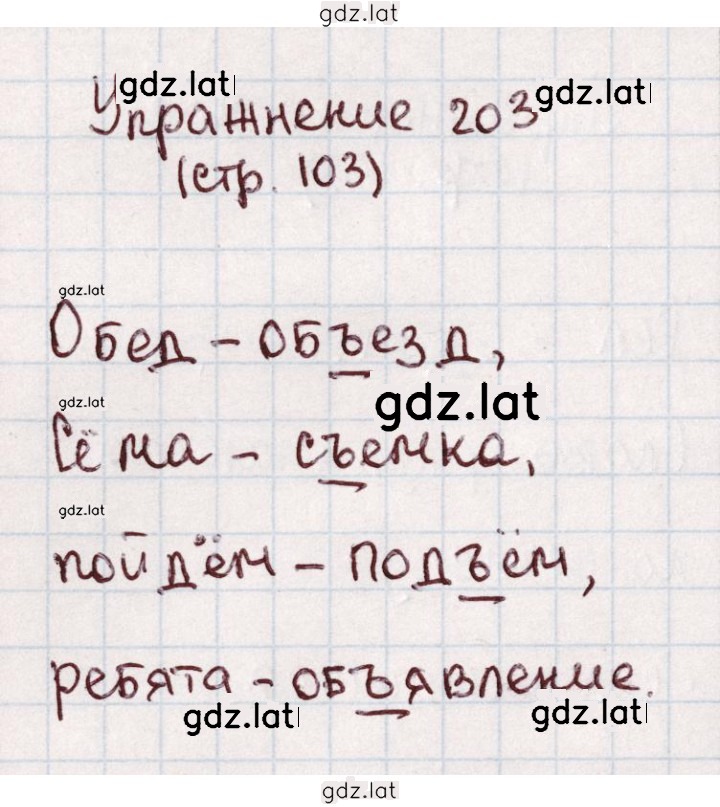 gdz.lat
gdz.lat
Упражнение 203
gdz.lat
(стр. 103)
gdz.lat
Обед - объезд,
gdz.lat
gdz.lat
Сёма - съемка,
gdz.lat
пойдём - подъём,
ребята - объявление.
gdz.lat
gdz.lat
gdz.lat